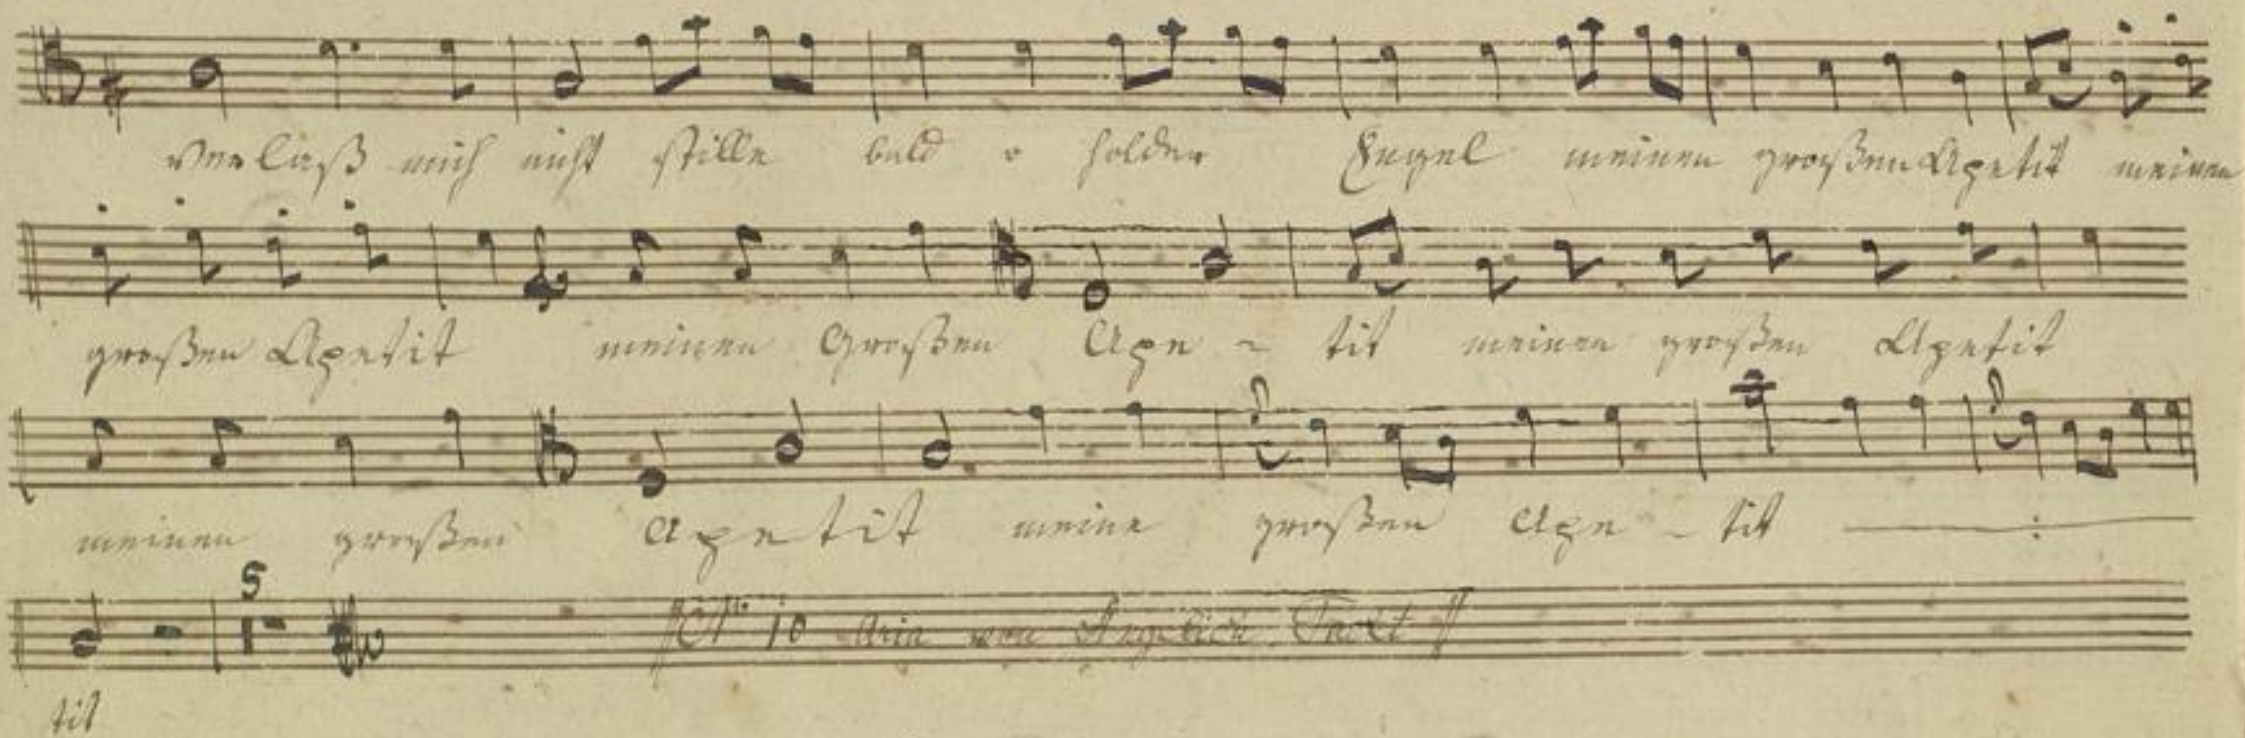 verlaß mich nicht stille bald o holder Engel meinen großen Apetit meinen
großen Apetit meinen Großen Ape - tit meinen großen Apetit
meinen großen Apetit meine großen Ape - tit
5
No 10 Aria von Tacet
tit